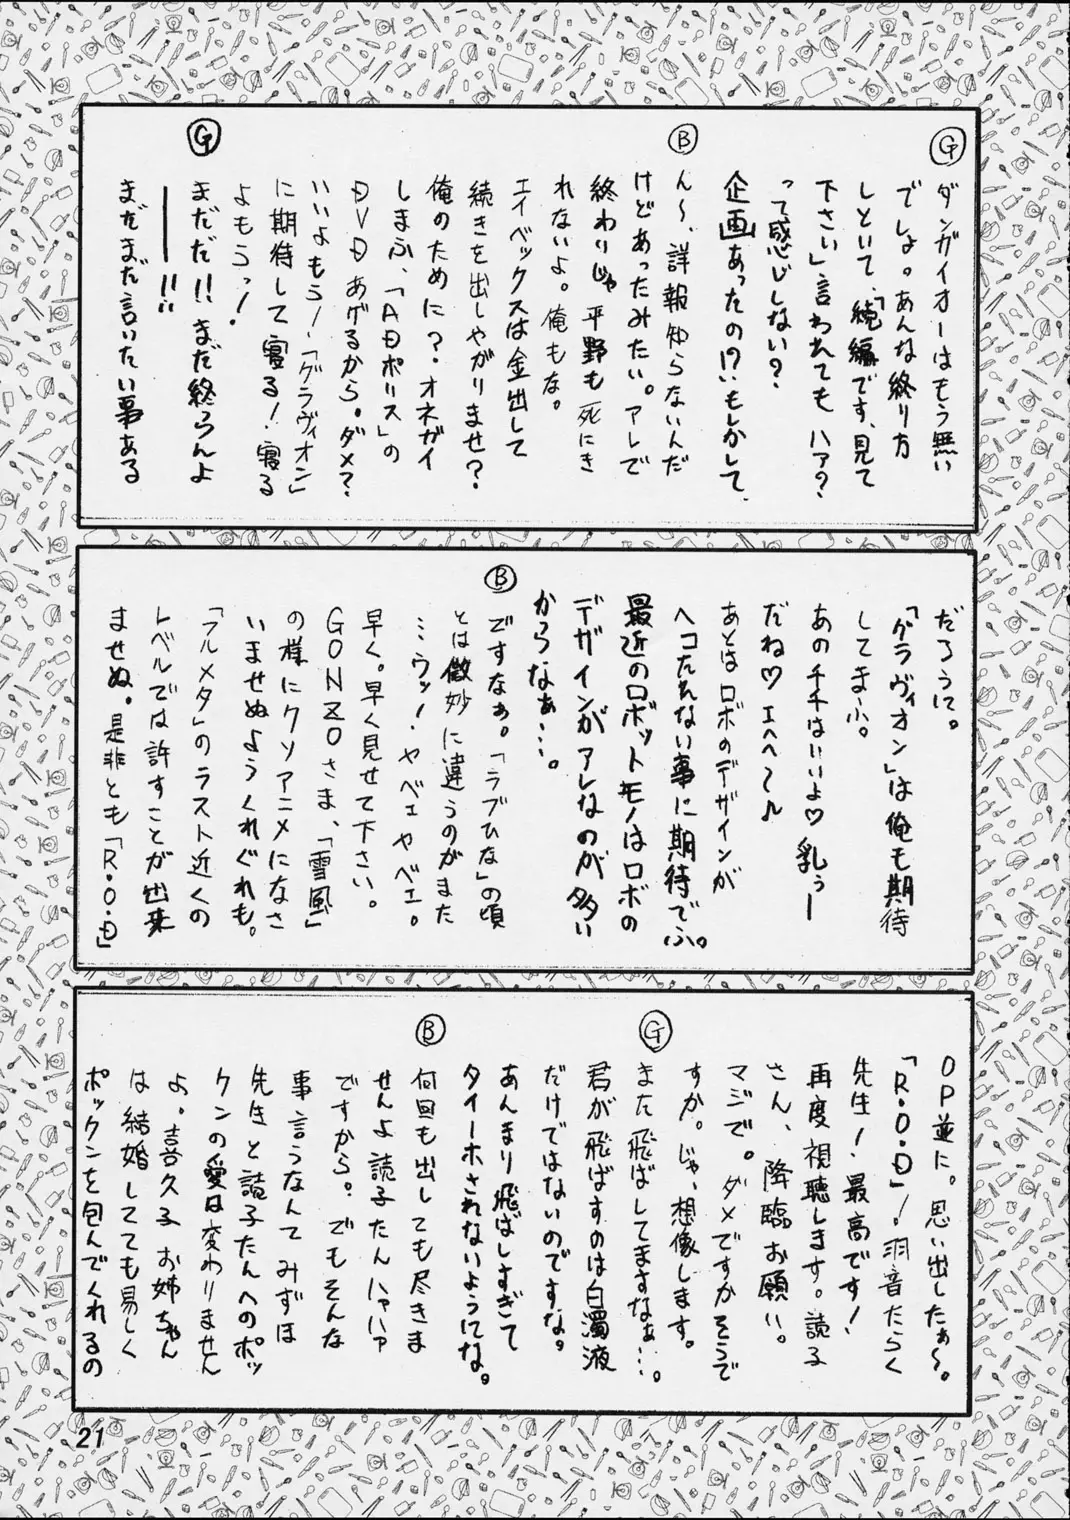 Ⓖ
ダンガイオーはもう無い
でしょ。あんな終り方
しといて、「続編です、見て
下さい」言われても ハァ?
って感じしない?
企画あったの!?もしかして。
Ⓑ
ん〜、詳報知らないんだ
けどあったみたい。アレで
終わりじゃ 平野も死にき
れないよ。俺もな。
エイベックスは金出して
続きを出しやがりませ?
俺のために?オネガイ
しまふ、「ADポリス」の
DVDあげるから。ダメ?
いいよもう!「グラヴィオン」
に期待して寝る!寝る
よもうっ!
Ⓖ
まだだ!!まだ終らんよ
――!!
まだまだ言いたい事ある
だろうに。
「グラヴィオン」は俺も期待
してまふ。
あの千千はいいよ♡乳ぅー
だね♡エへへ〜♪
あとはロボのデザインが
ヘコたれない事に期待でふ。
最近のロボットモノはロボの
デザインがアレなのが多い
からなぁ…。
Ⓑ
ですなぁ。「ラブひな」の頃
とは微妙に違うのがまた
…ウッ!ヤベェヤベェ。
早く。早く見せて下さい。
GONZOさま、「雪風」
の様にクソアニメになさ
いませぬようくれぐれも。
「フルメタ」のラスト近くの
レベルでは許すことが出来
ませぬ。是非とも「R・O・D」
OP並に。思い出したぁ〜。
「R・O・D」!羽音たらく
先生!最高です!
再度視聴します。読子
さん、降臨お願い。
マジで。ダメですかそうで
すか。じゃ、想像します。
Ⓖ
また飛ばしてますなぁ…。
君が飛ばすのは白濁液
だけではないのですな。
あんまり飛ばしすぎて
タイーホされないようにな。
Ⓑ
何回も出しても尽きま
せんよ読子たんハァハァ
ですから。でもそんな
事言うなんてみずほ
先生と読子たんへのポッ
クンの愛は変わりません
よ。喜久子お姉ちゃん
は結婚してても易しく
ポックンを包んでくれるの
21